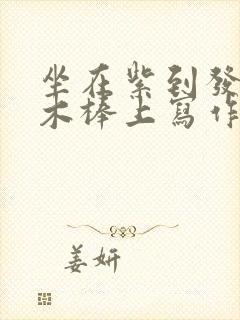 坐在紫到發
木棒上寫作
姜妍